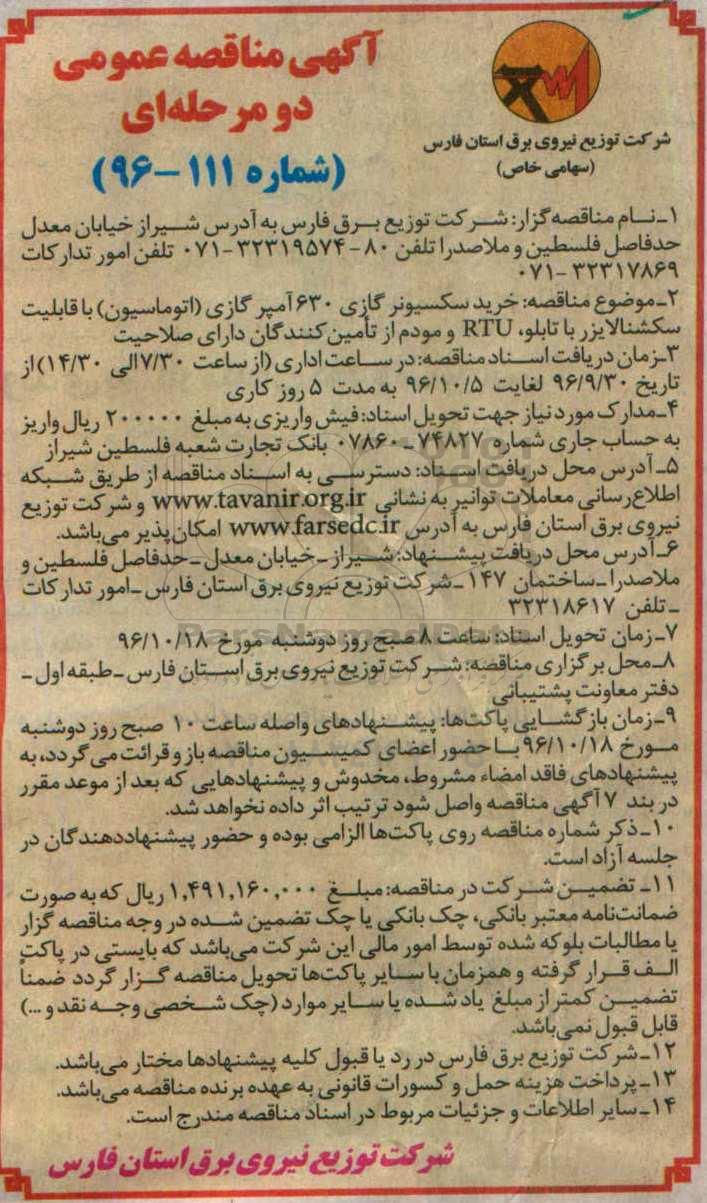 آگهی مناقصه عمومی
دو مرحله‌ای
(شماره ۱۱۱-۹۶)
شرکت توزیع نیروی برق استان فارس
(سهامی خاص)
۱-نام مناقصه‌گزار: شرکت توزیع برق فارس به آدرس شیراز خیابان معدل
حدفاصل فلسطین و ملاصدرا تلفن ۸۰-۳۲۳۱۹۵۷۴-۰۷۱ تلفن امور تدارکات
۳۲۳۱۷۸۶۹-۰۷۱
۲-موضوع مناقصه: خرید سکسیونر گازی ۶۳۰ آمپر گازی (اتوماسیون) با قابلیت
سکشنالایزر با تابلو، RTU و مودم از تأمین‌کنندگان دارای صلاحیت
۳-زمان دریافت اسناد مناقصه: در ساعت اداری (از ساعت ۷/۳۰ الی ۱۴/۳۰) از
تاریخ ۹۶/۹/۳۰ لغایت ۹۶/۱۰/۵ به مدت ۵ روز کاری
۴-مدارک مورد نیاز جهت تحویل اسناد: فیش واریزی به مبلغ ۲۰۰۰۰۰ ریال واریز
به حساب جاری شماره ۷۴۸۲۷-۰۷۸۶۰ بانک تجارت شعبه فلسطین شیراز
۵-آدرس محل دریافت اسناد: دسترسی به اسناد مناقصه از طریق شبکه
اطلاع‌رسانی معاملات توانیر به نشانی www.tavanir.org.ir و شرکت توزیع
نیروی برق استان فارس به آدرس www.farsedc.ir امکان‌پذیر می‌باشد.
۶-آدرس محل دریافت پیشنهاد: شیراز-خیابان معدل-حدفاصل فلسطین و
ملاصدرا-ساختمان ۱۴۷-شرکت توزیع نیروی برق استان فارس-امور تدارکات
-تلفن ۳۲۳۱۸۶۱۷
۷-زمان تحویل اسناد: ساعت ۸ صبح روز دوشنبه مورخ ۹۶/۱۰/۱۸
۸-محل برگزاری مناقصه: شرکت توزیع نیروی برق استان فارس-طبقه اول-
دفتر معاونت پشتیبانی
۹-زمان بازگشایی پاکت‌ها: پیشنهادهای واصله ساعت ۱۰ صبح روز دوشنبه
مورخ ۹۶/۱۰/۱۸ با حضور اعضای کمیسیون مناقصه باز و قرائت می‌گردد، به
پیشنهادهای فاقد امضاء مشروط، مخدوش و پیشنهادهایی که بعد از موعد مقرر
در بند ۷ آگهی مناقصه واصل شود ترتیب اثر داده نخواهد شد.
۱۰-ذکر شماره مناقصه روی پاکت‌ها الزامی بوده و حضور پیشنهاددهندگان در
جلسه آزاد است.
۱۱- تضمین شرکت در مناقصه: مبلغ ۱,۴۹۱,۱۶۰,۰۰۰ ریال که به صورت
ضمانت‌نامه معتبر بانکی، چک بانکی یا چک تضمین شده در وجه مناقصه گزار
یا مطالبات بلوکه شده توسط امور مالی این شرکت می‌باشد که بایستی در پاکت
الف قرار گرفته و همزمان با سایر پاکت‌ها تحویل مناقصه گزار گردد ضمناً
تضمین کمتر از مبلغ یاد شده یا سایر موارد (چک شخصی وجه نقد و ...)
قابل قبول نمی‌باشد.
۱۲-شرکت توزیع برق فارس در رد یا قبول کلیه پیشنهادها مختار می‌باشد.
۱۳-پرداخت هزینه حمل و کسورات قانونی به عهده برنده مناقصه می‌باشد.
۱۴-سایر اطلاعات و جزئیات مربوط در اسناد مناقصه مندرج است.
شرکت توزیع نیروی برق استان فارس